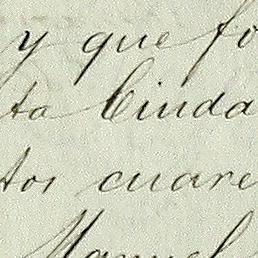 y que fo
ta Ciuda
tos cuare
Manuel